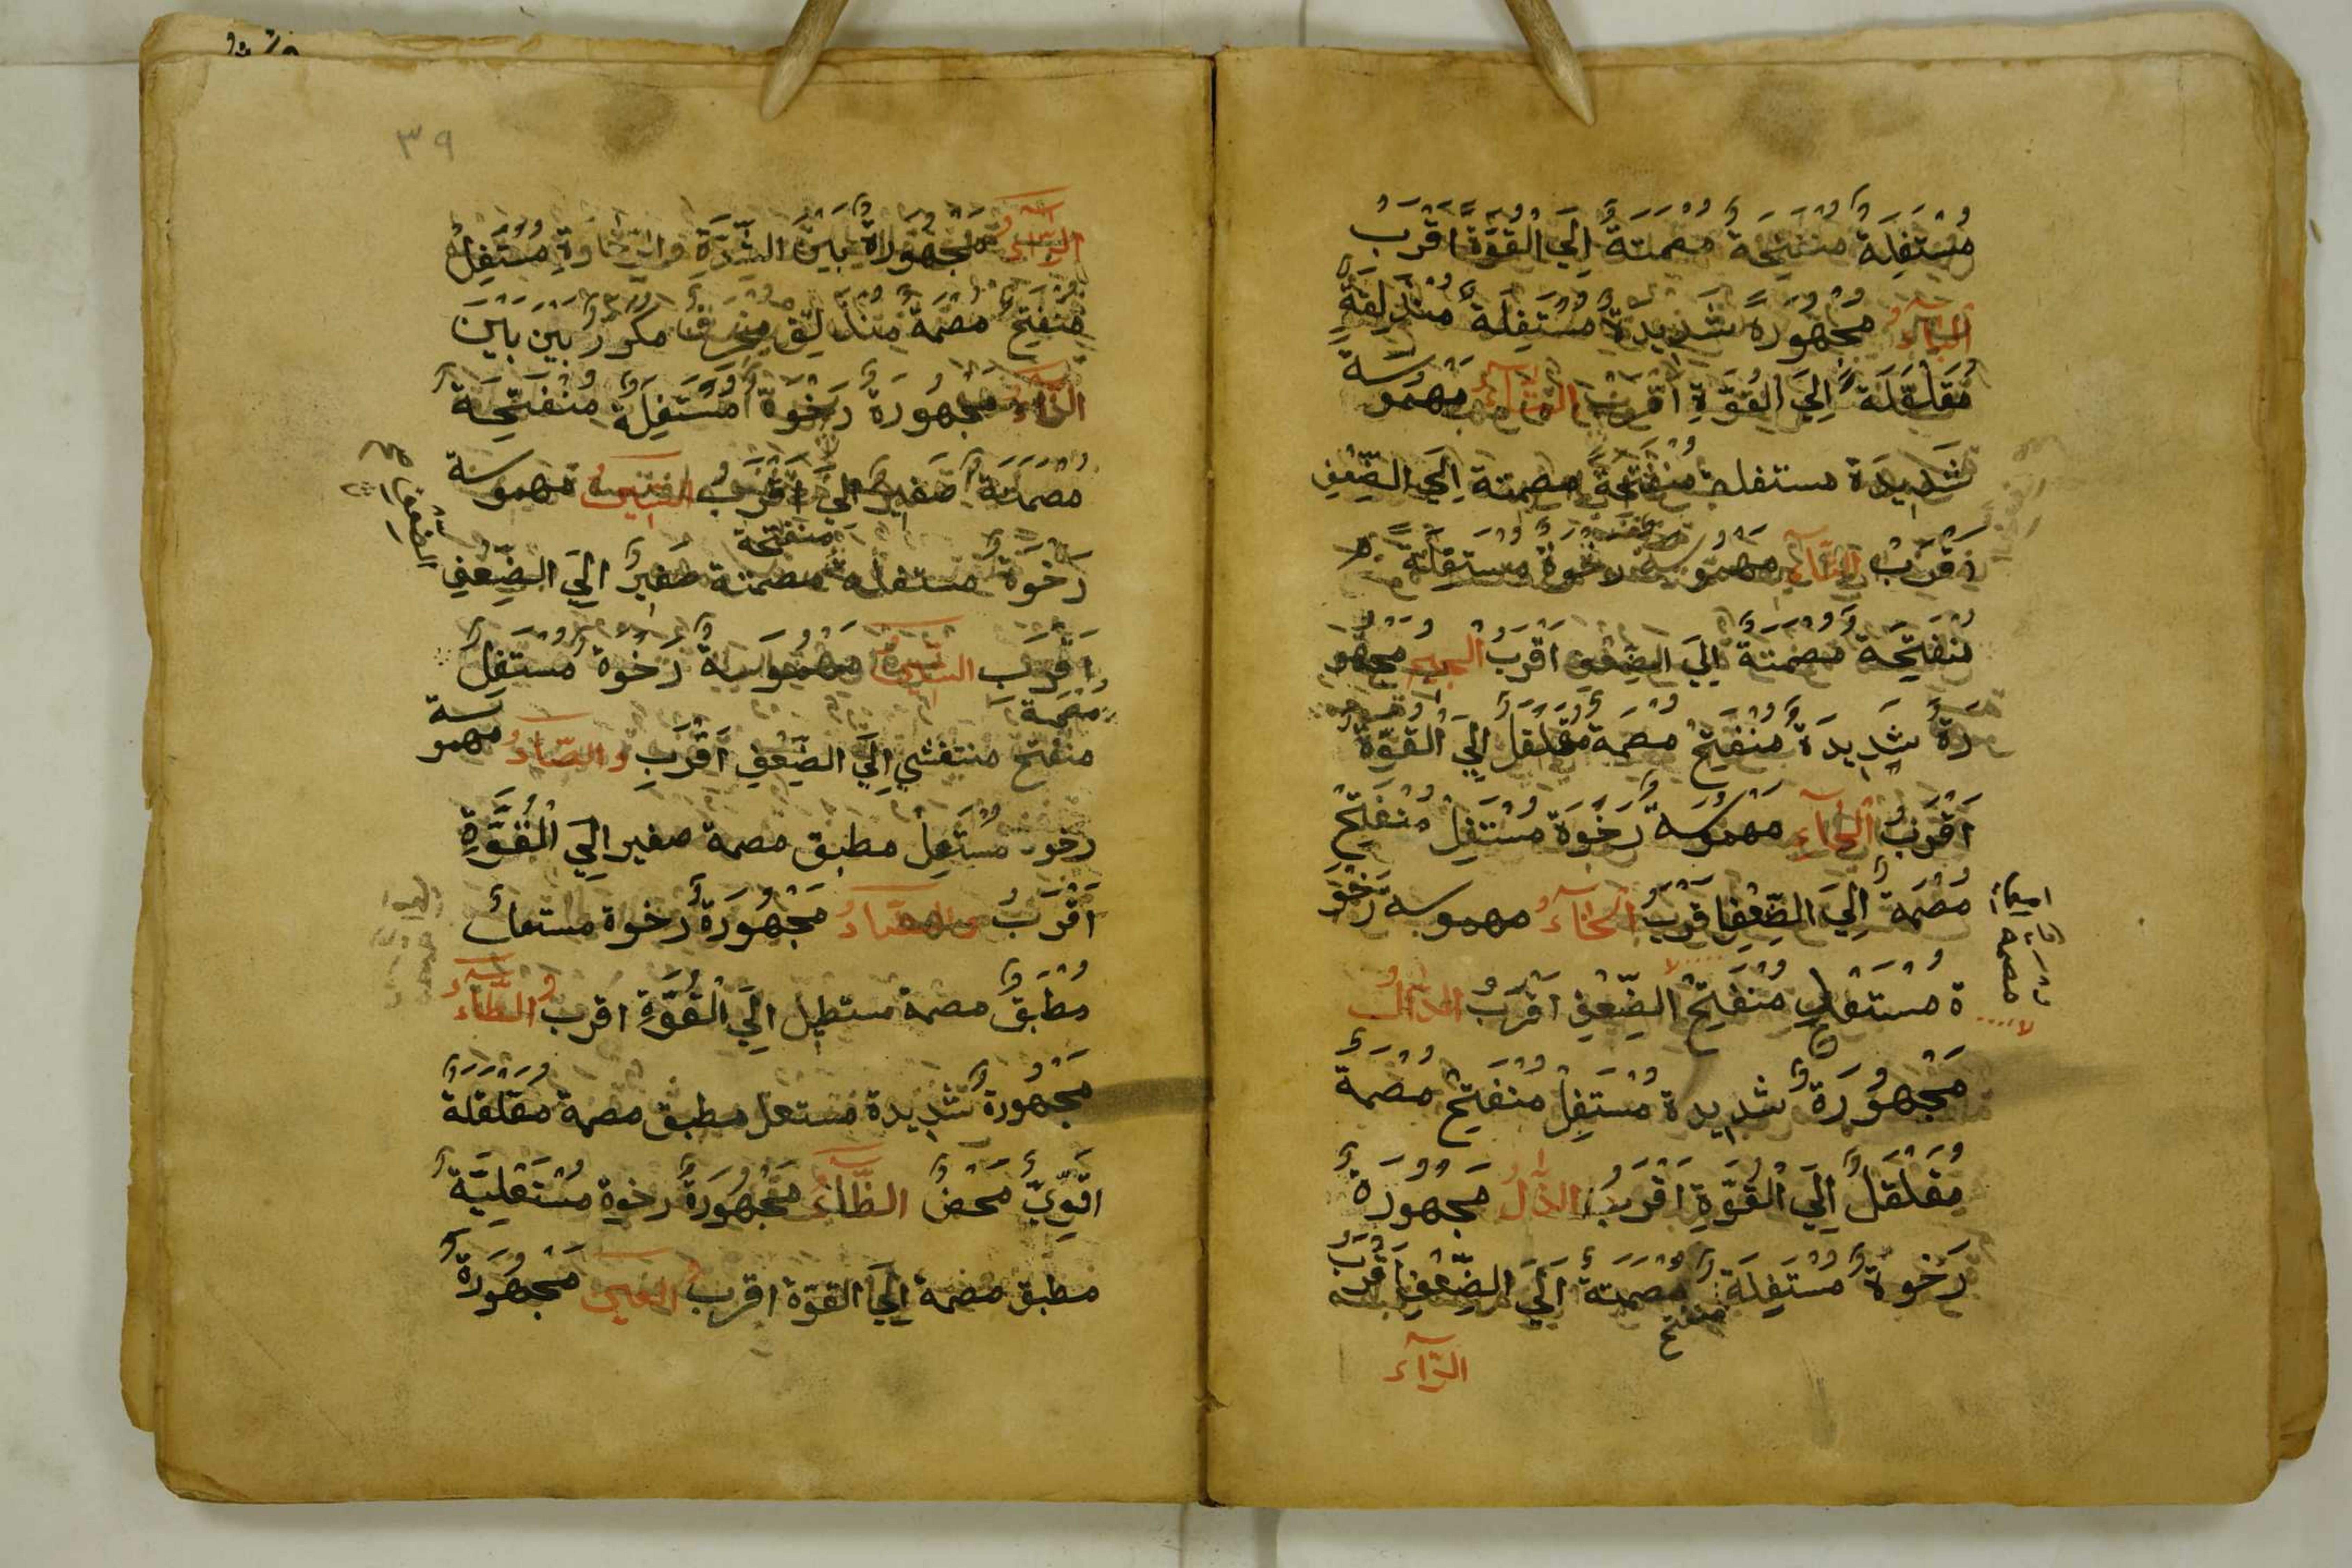 مُسْتَفِلَةٌ مُنْفَتِحَةٌ مُصْمَتَةٌ اِلَي الْقُوَّةِ اَقْرَبُ
اَلْبَآءُ مَجْهُورَةٌ شَدِيدَةٌ مُسْتَفِلَةٌ مُنْذَلِقَةٌ
مُقَلْقَلَةٌ اِلَي الْقُوَّةِ اَقْرَبُ التَّآءُ مَهْمُوسَة
شَدِيدَة مستفلة مُنْفَتِحَة مصمتة اِلَي الضِّعْفِ
اَقْرَبُ الثَّآءُ مَهْمُوسَة رَخْوَةٌ مُسْتَفِلَةٌ
مُنْفَتِحَةٌ مُصْمَتَةٌ اِلَي الضِّعْفِ اَقْرَبُ الْجِيم مَجْهُو
رَةٌ شَدِيدَةٌ مُنْفَتِحٌ مُصْمَةٌ مُقَلْقَلٌ اِلَي الْقُوَّةِ
اَقْرَبُ اَلْحَآءِ مَهْمُوسَةٌ رَخْوَة مُسْتَفِلٌ مُنْفَتِحٌ
مُصْمَةٌ اِلَي الضِّعْفِ اَقْرَبُ اَلْخَآءُ مهموسه رَخْوَ
مصمة
ة مُسْتَعْلٍ مُنْفَتِحٌ الضِّعْفِ اَقْرَبُ الدَّالُ
مَجْهُورَةٌ شديدة مُسْتَفِلٌ مُنْفَتِحٌ مُصْمَةٌ
مُقَلْقَلٌ اِلَي الْقُوَّةِ اَقْرَبُ الذَّالُ مَجْهُورَةٌ
رَخْوَةٌ مُسْتَفِلَةٌ مُصْمَتَةٌ اِلَي الضِّعْفِ اَقْرَبُ
منفتح
الرَّآء
٣٩
الرَّآءُ مَجْهُورَةٌ بَيْنَ الشِّدَّةِ وَالرَّخَاوَةِ مُسْتَفِلٌ
مُنْفَتِحٌ مُصْمَةٌ مُنْذَلِقٌ مُنْحَرِفٌ مُكَرَّرٌ بَيْنَ بَيْنَ
الزَّاءُ مَجْهُورَةٌ رَخْوَةٌ مُسْتَفِلَةٌ مُنْفَتِحَةٌ
مُصْمَتَةٌ صَفِيرٌ اِلَي اَقْرَبُ السِّينُ مهموسة
الضعف صح
منفتحة
رَخْوَةٌ مستفله مصمتة صَفِيرٌ اِلَي الضِّعْفِ
اَقْرَبُ الشِّينُ مَهْمُوسَةٌ رَخْوَةٌ مُسْتَفِلٌ
مُصْمَة
منفتح منتفشي اِلَي الضِّعْفِ اَقْرَبُ والصَّادُ مهموسة
رخوة مُسْتَعِلٌ مطبق مصمة صفير اِلَي الْقُوَّةِ
اَقْرَبُ والضَّادُ مَجْهُورَةٌ رخوة مستعل
مُطْبَقٌ مصمة مستطيل اِلَي الْقُوَّةِ اقرب الطَّآءُ
مَجْهُورَةٌ شَدِيدة مستعل مطبق مصمة مُقَلْقَلَةٌ
اقوِيّ مَحْضٌ الظَّاءُ مَجْهُورَةٌ رخوة مُسْتَعْلِيَةٌ
مطبق مصمة اِلَي القوّة اقرب العين مَجْهُورَةٌ